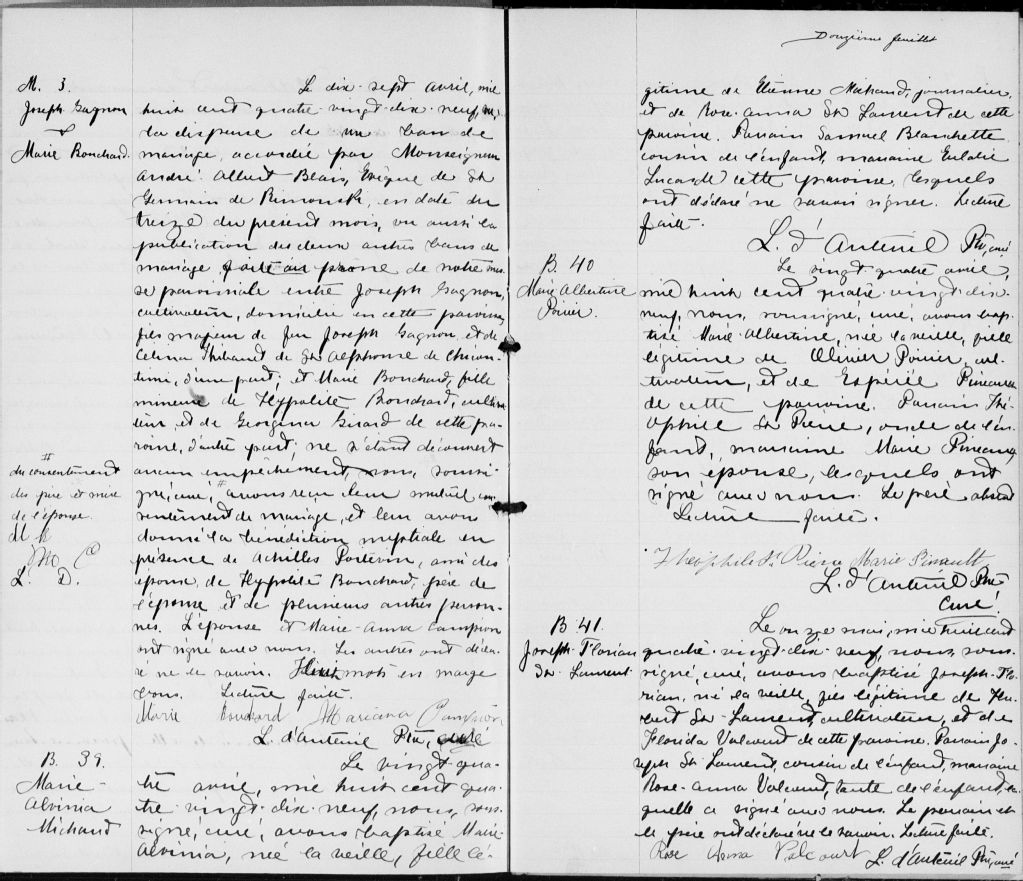 M. 3.
Joseph Gagnon
&
Marie Bouchard.
Le dix-sept avril, mil
huit cent quatre-vingt-dix-neuf, vu
la dispense de un ban de
mariage, accordée par Monseigneur
André-Albert Blais, Evêque de St
Germain de Rimouski, en date du
treize du présent mois, vu aussi la
publication des deux autres bans de
mariage faite au prone de notre mes-
se paroissiale entre Joseph Gagnon,
cultivateur, domicilié en cette paroisse,
fils majeur de feu Joseph Gagnon et de
Celina Thibaud de St Alphonse de Chicou-
timi, d'une part; et Marie Bouchard, fille
mineure de Hypolite Bouchard, cultiva-
teur et de Georgina Girard de cette pa-
roisse, d'autre part; ne s'étant découvert
aucun empêchement, nous, soussi-
gné, curé, # avons reçu leur mutuel con-
sentement de mariage, et leur avons
donné la bénédiction nuptiale en
présence de Achilles Poitevin, ami des
époux, de Hypolite Bouchard, père de
l'épouse et de plusieurs autres person-
nes. L'épouse et Marie-Anna Campion
ont signé avec nous. Les autres ont décla-
ré ne le savoir. mots en marge
bons. Lecture faite.
#
du consentement
des père et mère
de l'épouse.
L. D.
Marie Bouchard Mariana Campion
L. d'Auteuil Ptre, curé
B. 39.
Marie-
Alvinia
Michaud
Le vingt-qua-
tre avril, mil huit cent qua-
tre-vingt-dix-neuf, nous, sous-
signé, curé, avons baptisé Marie
Alvinia, née la veille, fille lé-
Douzième feuillet
gitime de Etienne Michaud, journalier,
et de Rose-Anna St Laurent de cette
paroisse. Parrain Samuel Blanchette
cousin de l'enfant, marraine Eulalie
Lucas de cette paroisse, lesquels
ont déclaré ne savoir signer. Lecture
faite.
L. d'Auteuil Ptre, curé
B. 40
Marie Albertine
Poirier.
Le vingt-quatre avril,
mil huit cent quatre-vingt-dix-
neuf, nous, soussigné, curé, avons bap-
tisé Marie-Albertine, née la veille, fille
légitime de Olivier Poirier, cul-
tivateur, et de Espérée Pineault
de cette paroisse. Parrain Thé-
ophile St Pierre, oncle de l'en-
fant, marraine Marie Pineault,
son épouse, lesquels ont
signé avec nous. Le père absent
Lecture faite.
Théophile St Pierre Marie Pinault
L. d'Auteuil Ptre
Curé.
B 41.
Joseph-Florian
St-Laurent
Le onze mai, mil huit cent
quatre-vingt-dix-neuf, nous, sous-
signé, curé, avons baptisé Joseph-Flo-
rian, né la veille, fils légitime de Hu-
bert St-Laurent, cultivateur, et de
Florida Valcourt de cette paroisse. Parrain Jo-
seph St Laurent, cousin de l'enfant, marraine
Rose-Anna Valcourt, tante de l'enfant, la-
quelle a signé avec nous. Le parrain et
le père ont déclaré ne le savoir. Lecture faite.
Rose Anna Valcourt L. d'Auteuil Ptre, curé